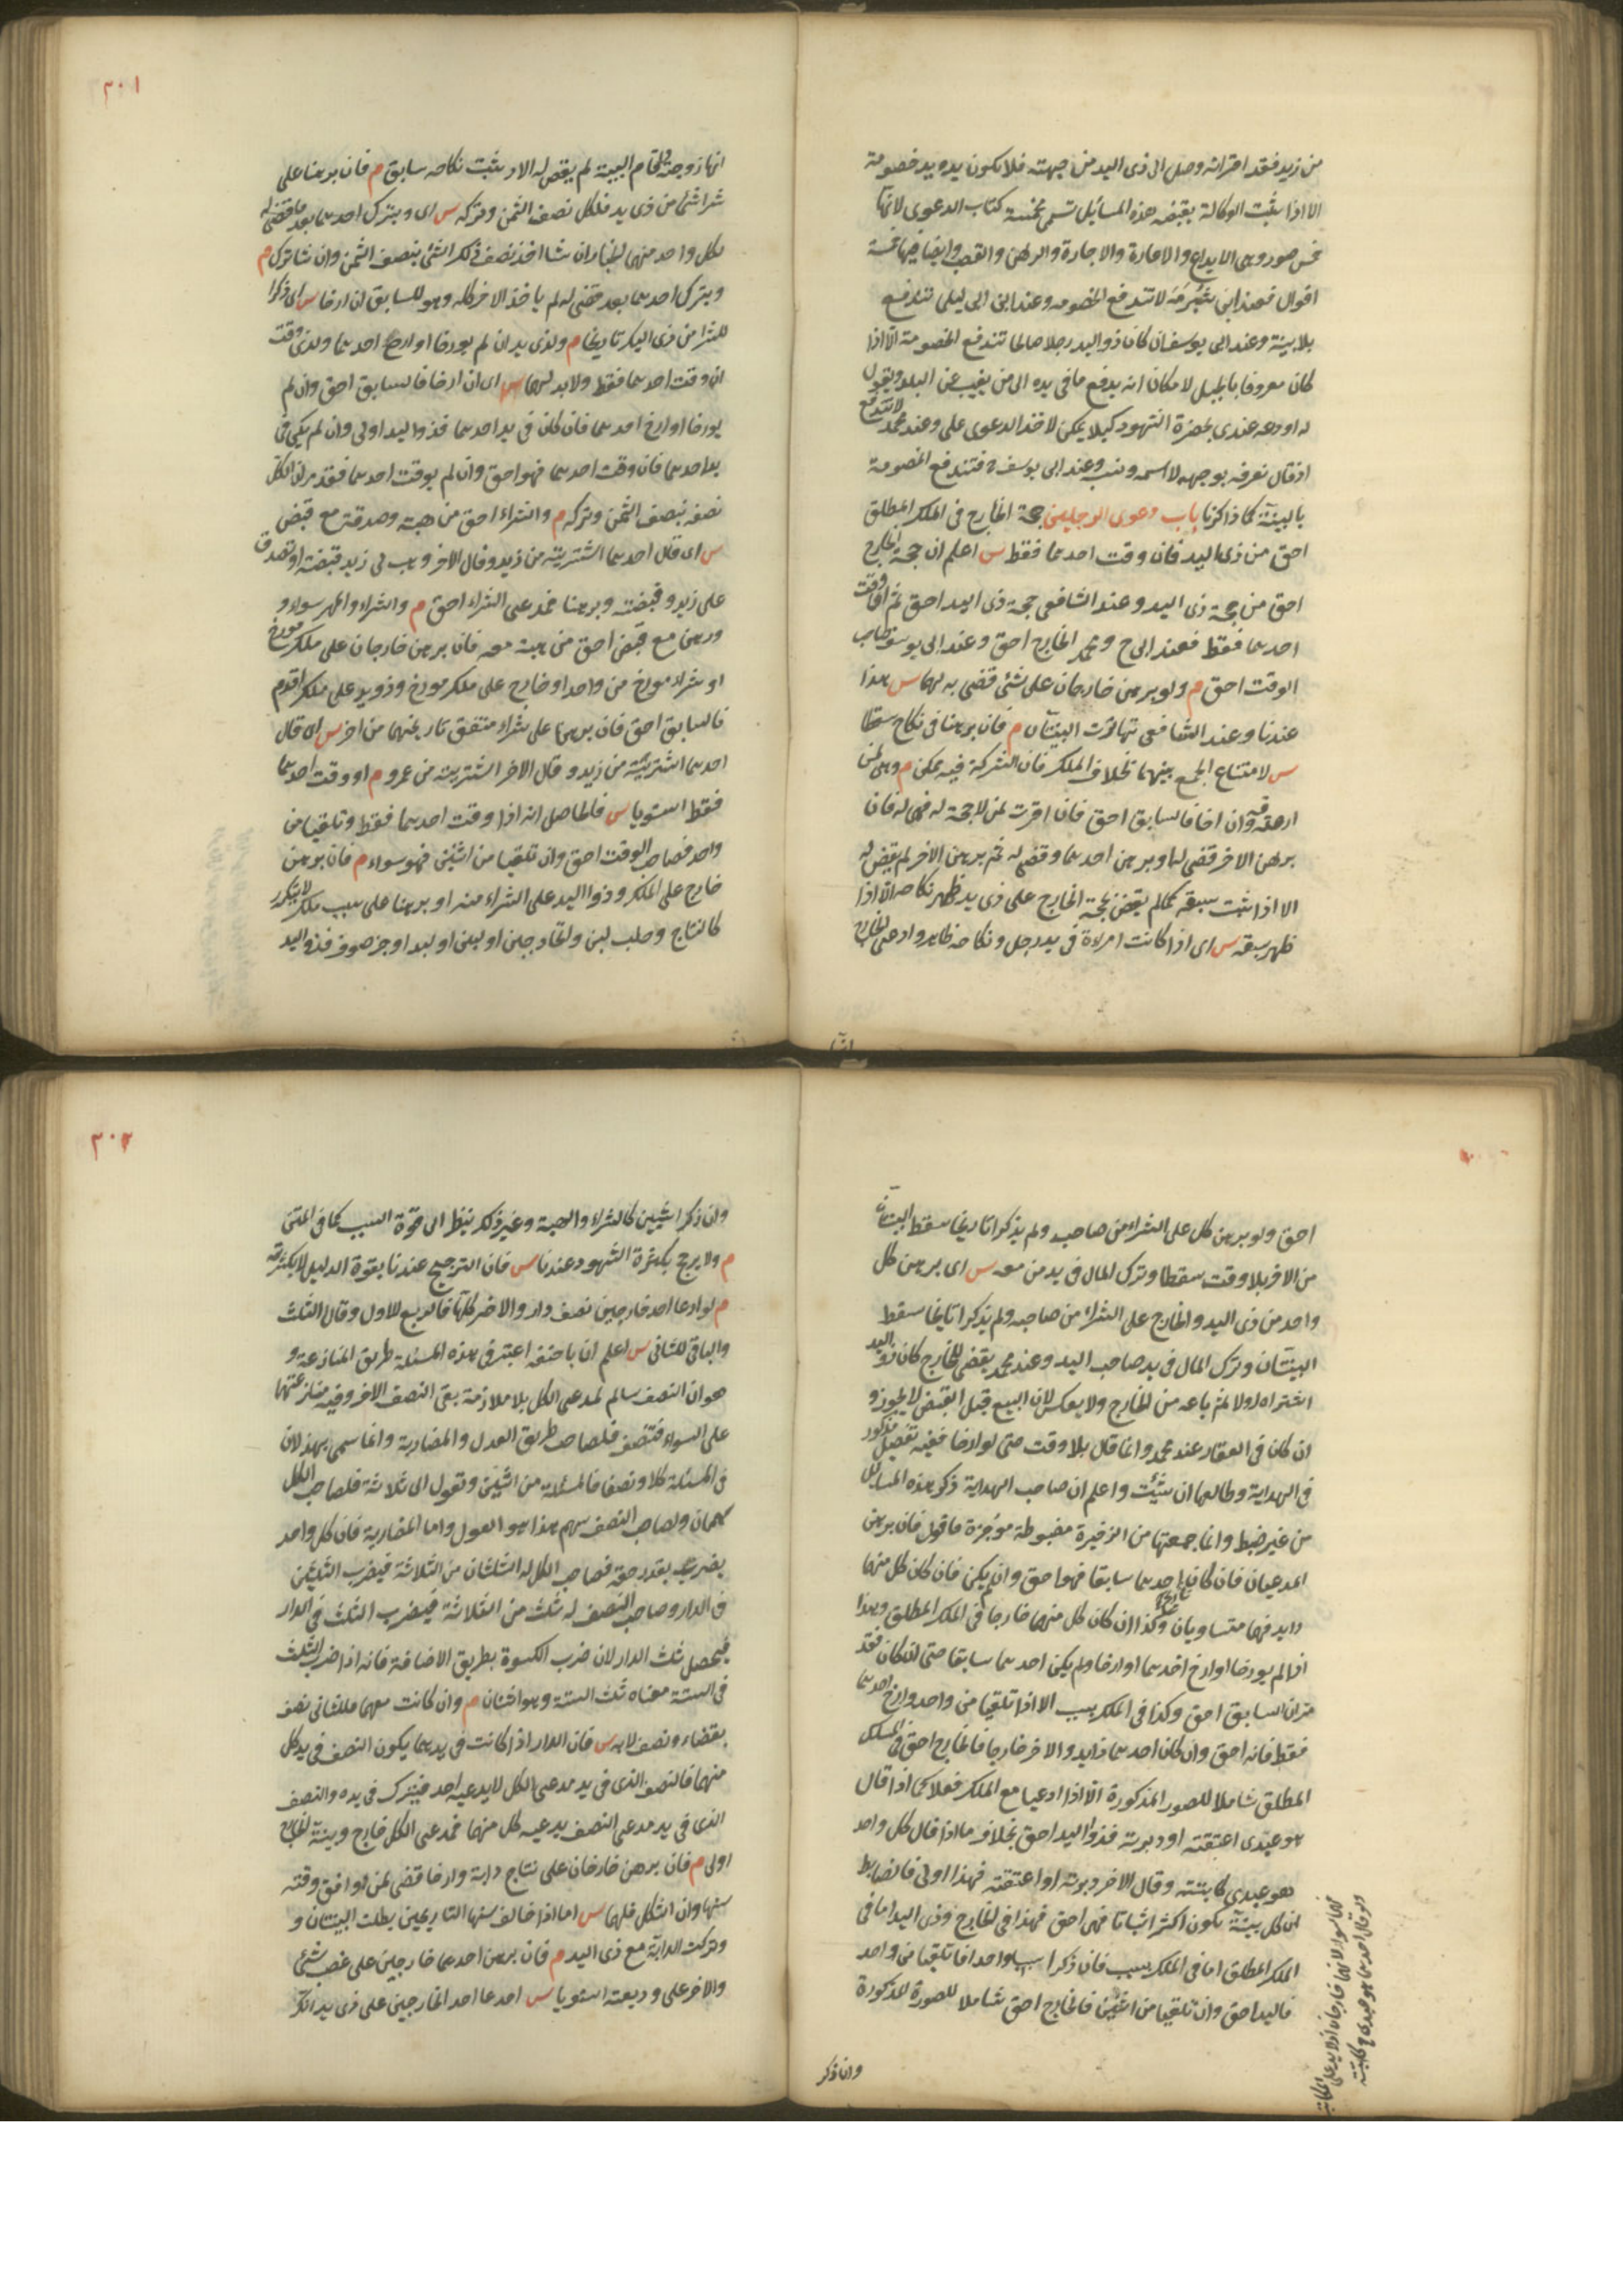 من زيد فقد اقر انه وصل الى ذى اليد من جهته فلا يكون يده يد خصومة
الا اذا يثبت الوكالة بقبضه هذه المسائل تسمى مخمسة كتاب الدعوى لانها
خمس صور وهى الايداع والاعارة والاجارة والرهن والغصب وايضا فيها خمسة
اقوال فعند ابن شبرمة لا تندفع الخصومه وعند ابن ابى ليلى تندفع
بلا بينة وعند ابى يوسف ان كان ذو اليد رجلا صالحا تندفع الخصومة الا اذا
كان معروفا بالحيل لامكان انه يدفع ما فى يده الى من يغيب عن البلد ويقول
له اودعه عندى بحضرة الشهود كيلا يمكن لاخذ الدعوى على وعند محمد لا تندفع
اذ قال نعرفه بوجهه لا اسمه ونسبه وعند ابى يوسف فتندفع الخصومة
بالبينة كما ذكرنا باب دعوى الرجلين حجة الخارج فى الملك المطلق
احق من ذى اليد فان وقت احدهما فقط س اعلم ان حجة الخارج
احق من حجة ذى اليد وعند الشافعى حجة ذى اليد احق ثم ان وقت
احدهما فقط فعند ابى ح ومحمد الخارج احق وعند ابى يوسف صاحب
الوقت احق م ولو برهن خارجان على شئ قضى به لهما س هذا
عندنا وعند الشافعى تهاترت البينتان م فان برهنا فى نكاح سقطا
س لامتناع الجمع بينهما بخلاف الملك فان الشركة فيه يمكن م وهى لمن
صدقته وان ارخا فالسابق احق فان اقرت لمن لا حجة له فهى له فان
برهن الاخر قضى له او برهن احدهما وقضى له ثم برهن الاخر لم يقض له
الا اذا ثبت سبقه كما لم يقض بحجة الخارج على ذى يد ظهر نكاحه الا اذا
ظهر سبقه س اى اذا كانت امراة فى يد رجل ونكاحه ظاهر وادعى الخارج
٣٠١
انها زوجته واقام البينة لم يقض له الا ان يثبت نكاحه سابق م فان برهنا على
شراء شئ من ذى يد فلكل نصف الثمن وتركه س اى ويترك احدهما بعد ما قضى له
لكل واحد منهما الخيار ان شا اخذ نصف ذلك الشئ بنصف الثمن وان شا ترك م
وبترك احدهما بعد ما قضى له لم ياخذ الاخر كله وهو للسابق ان ارخا س اى ذكرا
للشرا من ذى اليد تاريخا م ولذى يد ان لم يورخا او ارخ احدهما ولذى وقت
ان وقت احدهما فقط ولا يد لهما س اى ان ارخا فالسابق احق وان لم
يورخا او ارخ احدهما فان كان فى يد احدهما فذو اليد اولى وان لم يكن فى
يد احدهما فان وقت احدهما فهو احق وان لم يوقت احدهما فقد مر ان لكل
نصفه بنصف الثمن وتركه م والشراء احق من هبة وصدقة مع قبض
س اى قال احدهما اشتريته من زيد وقال الاخر وهب لى زيد قبضته او تصدق
على زيد وقبضته وبرهنا فمدعى الشراء احق م والشراء والمهر سواء و
ورهن مع قبض احق من هبة معه فان برهن خارجان على ملك مورخ
او شراء مورخ من واحد او خارج على ملك مورخ وذو يد على ملك اقدم
فالسابق احق فان برهنا على شراء متفق تاريخهما من اخر س اى قال
احدهما اشتريته من زيد وقال الاخر اشتريته من عمرو م او وقت احدهما
فقط استويا س فالحاصل انه اذا وقت احدهما فقط وتلقيا من
واحد فصاحب الوقت احق وان تلقيا من اثنين فهو سواء م فان برهن
خارج على الملك وذو اليد على الشراء منه او برهنا على سبب ملك لا يتكرر
كالنتاج وحلب لبن واتخاذ جبن او لبن او لبد او جز صوف فذو اليد
احق ولو برهن كل على الشراء من صاحبه ولم يذكرا تاريخا سقط البينتان
من الاخر بلا وقت سقطا وترك المال فى يد من معه س اى برهن كل
واحد من ذى اليد والخارج على الشراء من صاحبه ولم يذكرا تاريخا سقط
البينتان وترك المال فى يد صاحب اليد وعند محمد يقضى للخارج كان ذو اليد
اشتراه اولا ثم باعه من الخارج ولا يعكس لان البيع قبل القبض لا يجوز و
ان كان فى العقار عند محمد وانما قال بلا وقت حتى لو ارخا ففيه تفصيل مذكور
فى الهداية وطالعها ان شئت واعلم ان صاحب الهداية ذكر هذه المسائل
من غير ضبط وانما جمعتها من الذخيرة مضبوطة موجزة فاقول فان برهن
المدعيان فان كان تاريخ احدهما سابقا فهو احق وان لم يكن فان كان كل منهما
ذايد فهما متساويان وكذا ان كان كل منهما خارجا فى الملك المطلق وهذا
اذا لم يورخا او ارخ احدهما او ارخا ولم يكن احدهما سابقا حتى ان كان فقد
مر ان السابق احق وكذا فى الملك بسبب الا اذا تلقيا من واحد وارخ احدهما
فقط فانه احق وان كان احدهما ذا يد والاخر خارجا فالخارج احق فى الملك
المطلق شاملا للصور المذكورة الا اذا ادعيا مع الملك فعلا كما اذا قال
هو عبدى اعتقته او دبرته فذو اليد احق بخلاف ما اذا قال كل واحد
هو عبدى كاتبته وقال الاخر دبرته او اعتقته فهذا اولى فالضابط
ان كل بينة يكون اكثر اثباتا فهى احق فهذا فى الخارج وذى اليد اما فى
الملك المطلق اما فى الملك بسبب فان ذكرا سببا واحدا فان تلقيا من واحد
فاليد احق وان تلقيا من اثنين فالخارج احق شاملا للصورة المذكورة
وان ذكر
ولو قال احدهما هو عبدى كاتبته
فهما سواء لانهما خارجان اذ لا يد على المكاتب
٣٠٢
وان ذكرا سببين كالشراء والهبة وغير ذلك ينظر الى قوة السبب كما فى المتن
م ولا يرجح بكثرة الشهود عندنا س فان الترجيح عندنا بقوة الدليل لا بكثرته
م لو ادعا احد خارجين نصف دار والاخر كلها فالربع للاول وقالا الثلث
والباقى للثانى س اعلم ان باحنيفه اعتبر فى هذه المسئلة طريق المنازعة و
هو ان النصف سالم لمدعى الكل بلا ملازمة بقى النصف الاخر وفيه منازعتهما
على السواء فتنصف فلصاحب طريق العدل والمضاربة وانما سمى بهذ لان
فى المسئلة كلا ونصفا فالمسئلة من اثنين وتعول الى ثلاثة فلصاحب الكل
سهمان ولصاحب النصف سهم هذا هو العول واما المضاربة فان كل واحد
يضرب بقدر حقه فصاحب الكل له الثلثان من الثلاثة فيضرب الثلثين
فى الدار وصاحب النصف له ثلث من الثلاثة فيضرب الثلث فى الدار
فيحصل ثلث الدار لان ضرب الكسوة بطريق الاضافة فانه اذا ضرب الثلث
فى الستة معناه ثلث الستة وهو اثنان م وان كانت معهما فللثانى نصف
بقضاء ونصف لا به س فان الدار اذا كانت فى يدهما يكون النصف فى يد كل
منهما فالنصف الذى فى يد مدعى الكل لا يدعيه احد فيترك فى يده والنصف
الذى فى يد مدعى النصف يدعيه كل منهما فمدعى الكل خارج وبينة الخارج
اولى م فان برهن خارجان على نتاج دابة وارخا قضى لمن وافق وقته
سنها وان اشكل فلهما س اما اذا خالف سنها التاريخين بطلت البينتان و
وتركت الدابة مع ذى اليد م فان برهن احدهما خارجين على غصب شئ
والاخر على وديعته استويا س ادعا احد الخارجين على ذى يد انك